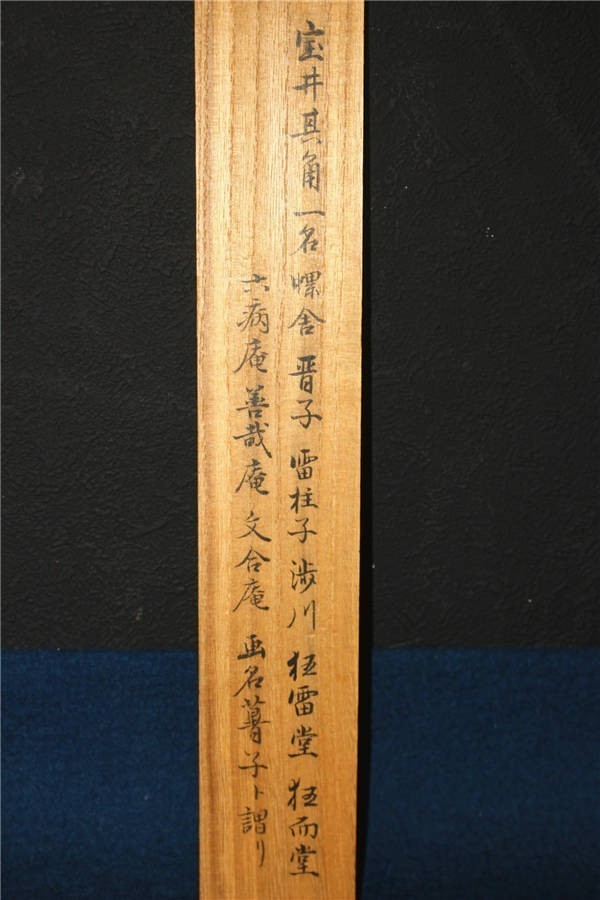 宝井其角一名螺舎晋子雷柱子渉川狂雷堂狂而堂
六病庵善哉庵文合庵画名暮子ト謂リ